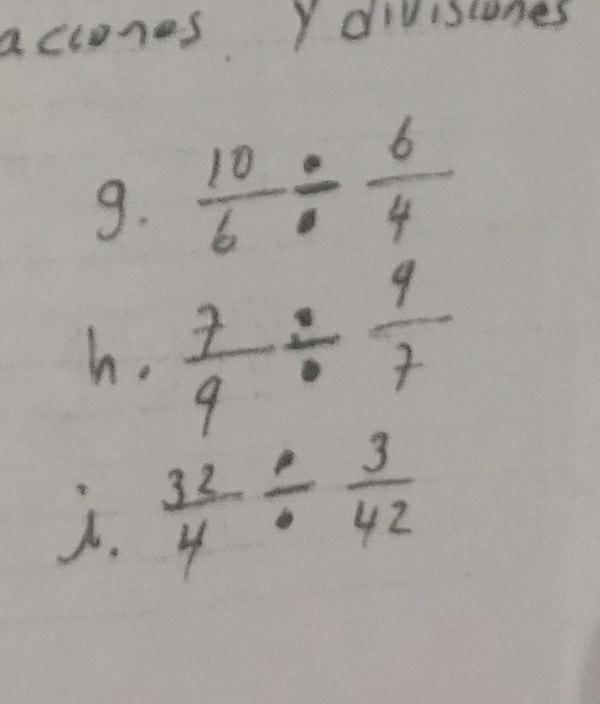 aciones y divisiones
g. 10/6 ÷ 6/4
h. 7/9 ÷ 9/7
i. 32/4 ÷ 3/42